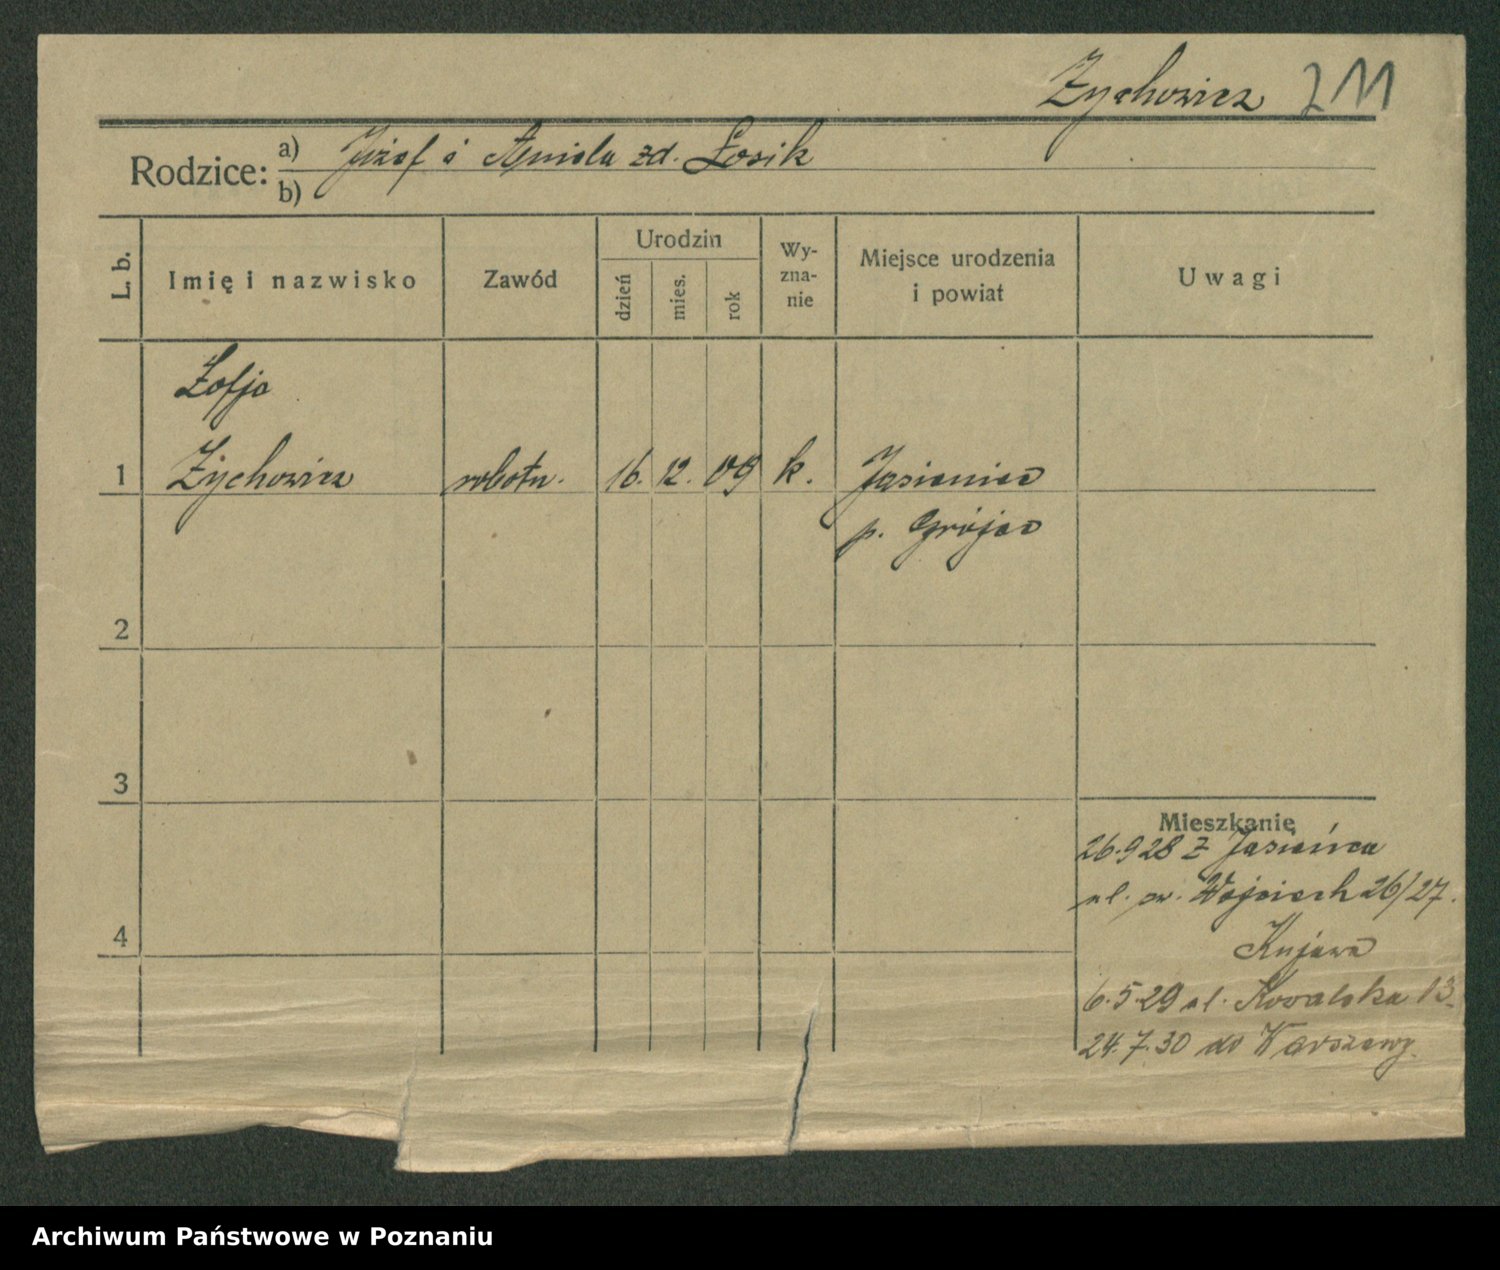 Żychowicz 211
Rodzice: a) Józef i Aniela zd. Łosik
b)
L. b.
Imię i nazwisko
Zawód
Urodzin
dzień
mies.
rok
Wy-
zna-
nie
Miejsce urodzenia
i powiat
Uwagi
Zofja
1 Żychowicz robotn. 16. 12. 09 k. Jasieniec
p. Grójec
2
3
Mieszkanie
26.9 28 z Jasieńca
ul. św. Wojciech 26/27.
4
Kujawa
6.5.29 ul. Kowalska 13
24.7.30 do Warszawy.
Archiwum Państwowe w Poznaniu